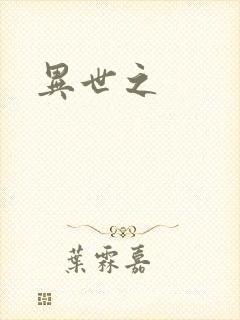 異世之
葉霖嘉